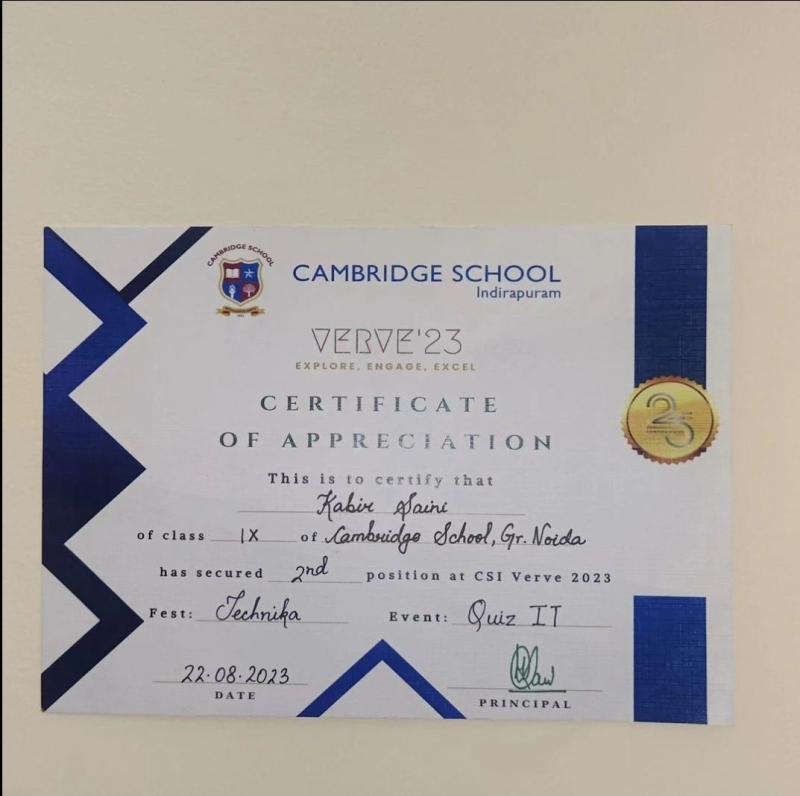 CAMBRIDGE SCHOOL
CAMBRIDGE SCHOOL
Indirapuram
VERVE'23
EXPLORE, ENGAGE, EXCEL
CERTIFICATE
OF APPRECIATION
25
This is to certify that
Kabir Saini
of class IX of Cambridge School, Gr. Noida
has secured 2nd position at CSI Verve 2023
Fest: Technika Event: Quiz IT
22.08.2023
DATE
PRINCIPAL